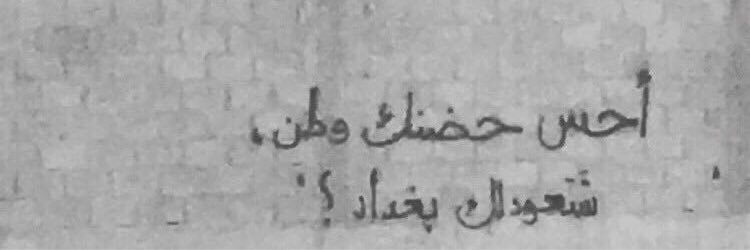 أحس حضنك وطن،
شتعودلك بغداد ؟